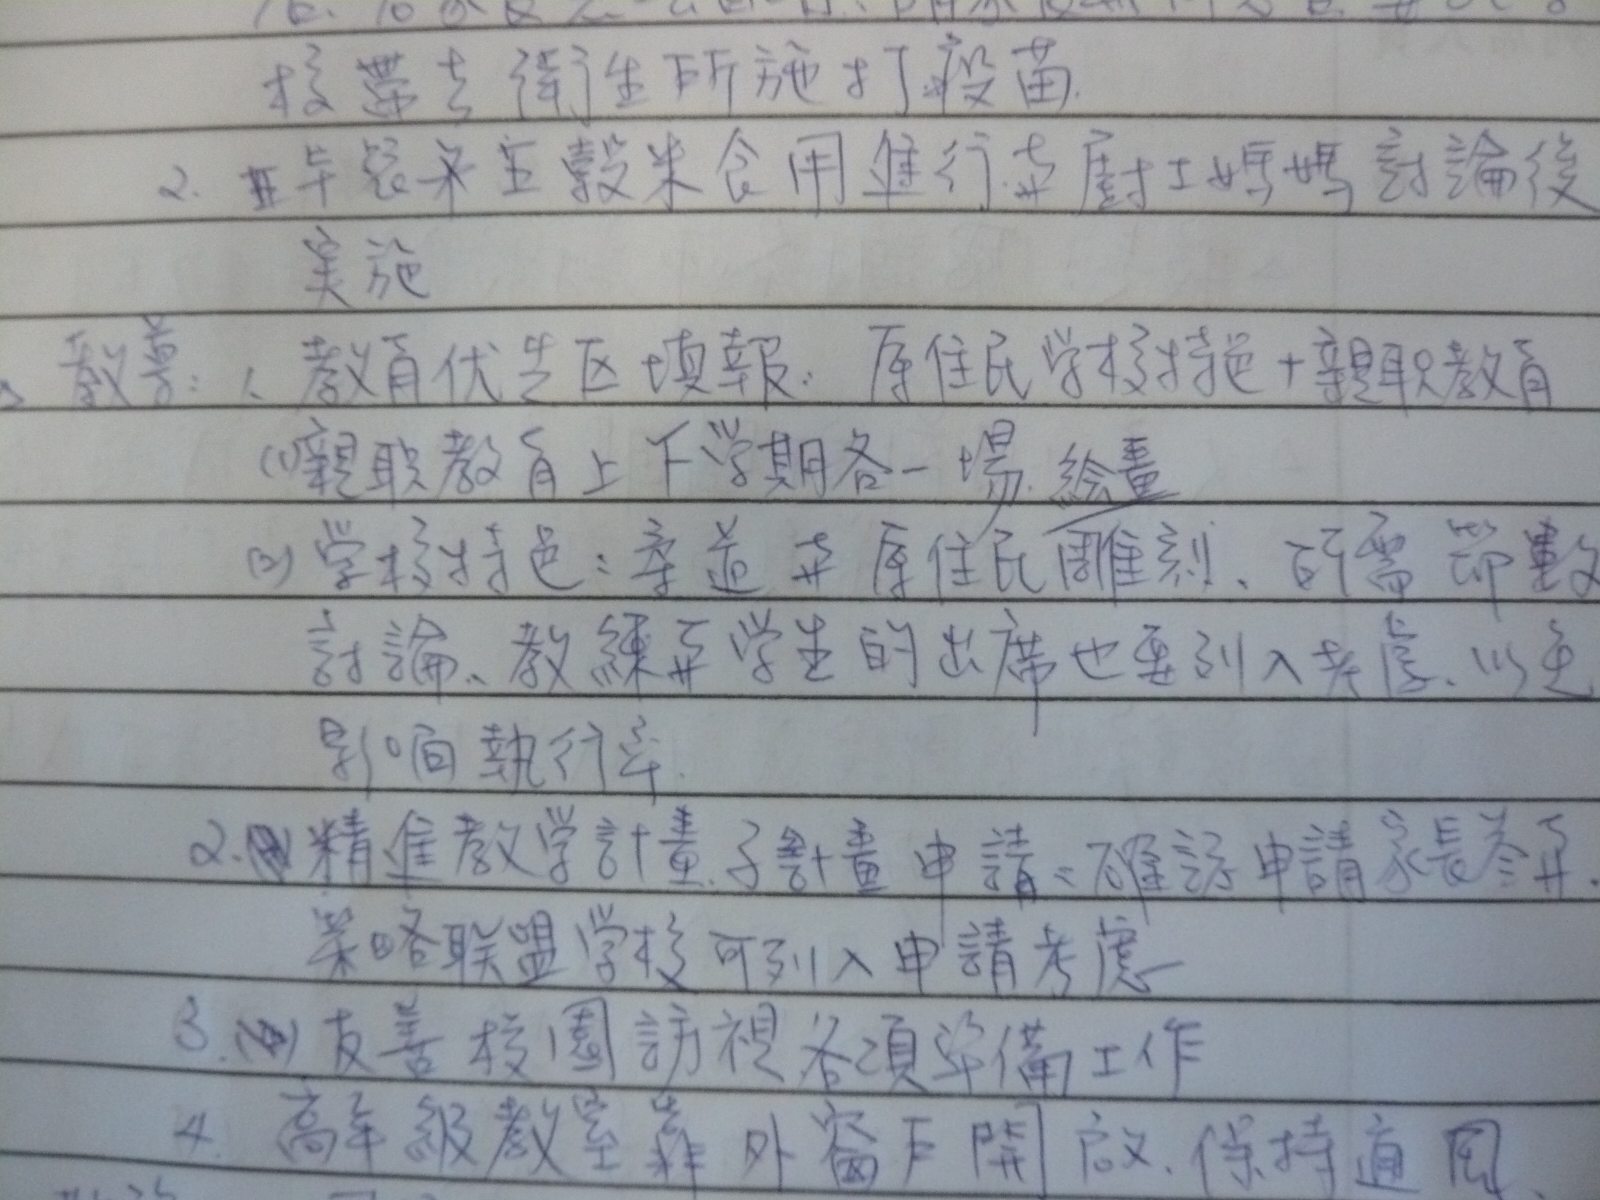 校學去衛生所施打疫苗.
2. 午餐米五穀米食用進行弄廚工媽媽討論後
実施
教導: 1、教育优先区填報: 原住民学校特色+親职教育
(1)親职教育上下学期各一場. 絵畫
(2)学校特色:柔道弄原住民雕刻、所需節數
討論、教練弄学生的出席也要列入考慮、以免
影响執行率.
2. 精進教学計畫.子計畫申請:確認申請家長參弄.
策略联盟学校可列入申請考慮
3. 友善校園訪視各項準備工作
4. 高年級教室靠外窗戶開啟、保持通風、